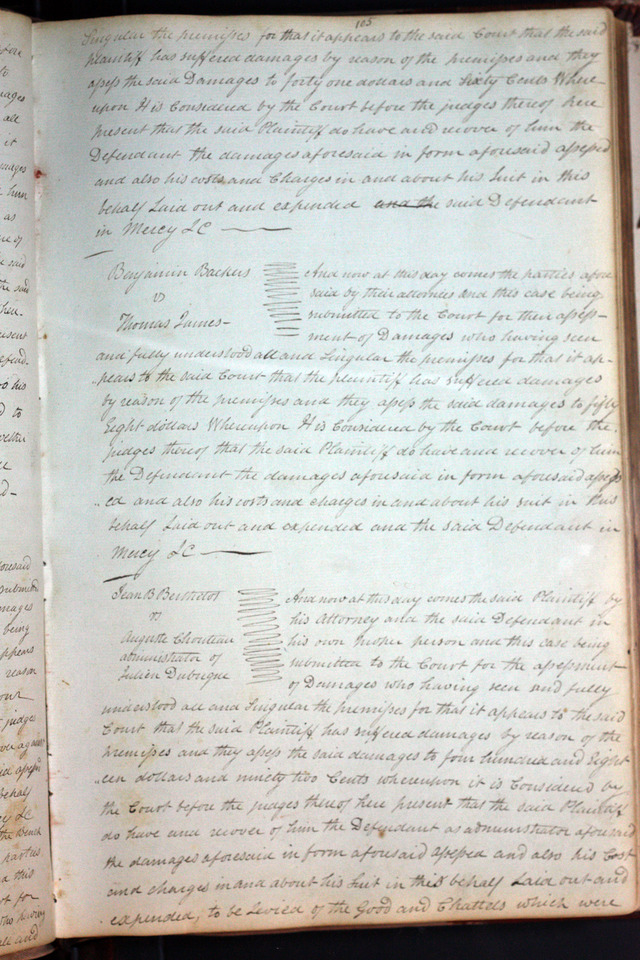 105
Singular the premisses for that it appears to the said Court that the said
plaintiff has suffered damages by reason of the premisses and they
assess the said Damages to forty one dollars and sixty Cents Where-
upon It is Considered by the Court before the judges thereof here
present that the said Plaintiff do have and recover of him the
Defendant the damages aforesaid in form aforesaid assessed
and also his costs and Charges in and about his Suit in this
behalf Laid out and expended and the said Defendant
in Mercy &C
Benjamin Backers
vs
Thomas James-
And now at this day comes the parties afore
said by their attornies and this case being
submitted to the Court for their assess-
ment of Damages who having seen
and fully understood all and Singular the premisses for that it ap-
pears to the said Court that the plaintiff has suffered damages
by reason of the premisses and they assess the said damages to fifty
Eight dollars Whereupon It is Considered by the Court before the
judges thereof that the said Plaintiff do have and recover of him
the Defendant the damages aforesaid in form aforesaid assess
ed and also his costs and charges in and about his suit in this
behalf Laid out and expended and the said Defendant in
Mercy &C
Jean B Berthelot
vs
Auguste Chouteau
administrator of
Julien Dubuque
And now at this day comes the said Plaintiff by
his Attorney and the said Defendant in
his own proper person and this case being
submitted to the Court for the assessment
of Damages who having seen and fully
understood all and Singular the premisses for that it appears to the said
Court that the said Plaintiff has suffered damages by reason of the
premisses and they assess the said damages to four hundred and Eight
een dollars and ninety two Cents whereupon it is Considered by
the Court before the judges thereof here present that the said Plaintiff
do have and recover of him the Defendant as administrator aforesaid
the damages aforesaid in form aforesaid assessed and also his Cost
and charges in and about his Suit in this behalf Laid out and
expended, to be Levied of the Good and Chattels which were